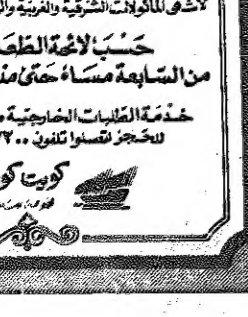 لأشهى المأكولات الشرقية والغربية
حسب لائحة الطعام
من السابعة مساءً حتى
خدمة الطلبات الخارجية
للحجز اتصلوا تلفون
كويت